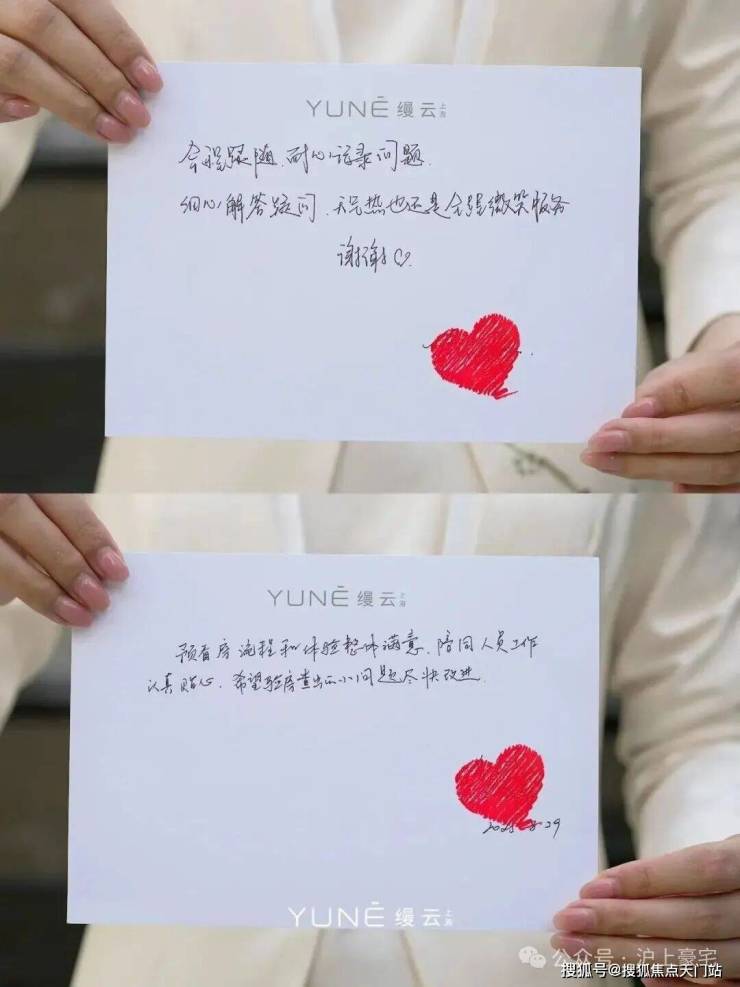 YUNĒ 缦云上海
全程跟随、耐心记录问题
细心解答疑问、天气热也还是全程微笑服务
谢谢♡
YUNĒ 缦云上海
预看房流程和体验整体满意、陪同人员工作
认真贴心、希望验房查出的小问题尽快改进
2025-8-29
YUNĒ 缦云上海
公众号·沪上豪宅
搜狐号@搜狐焦点天门站